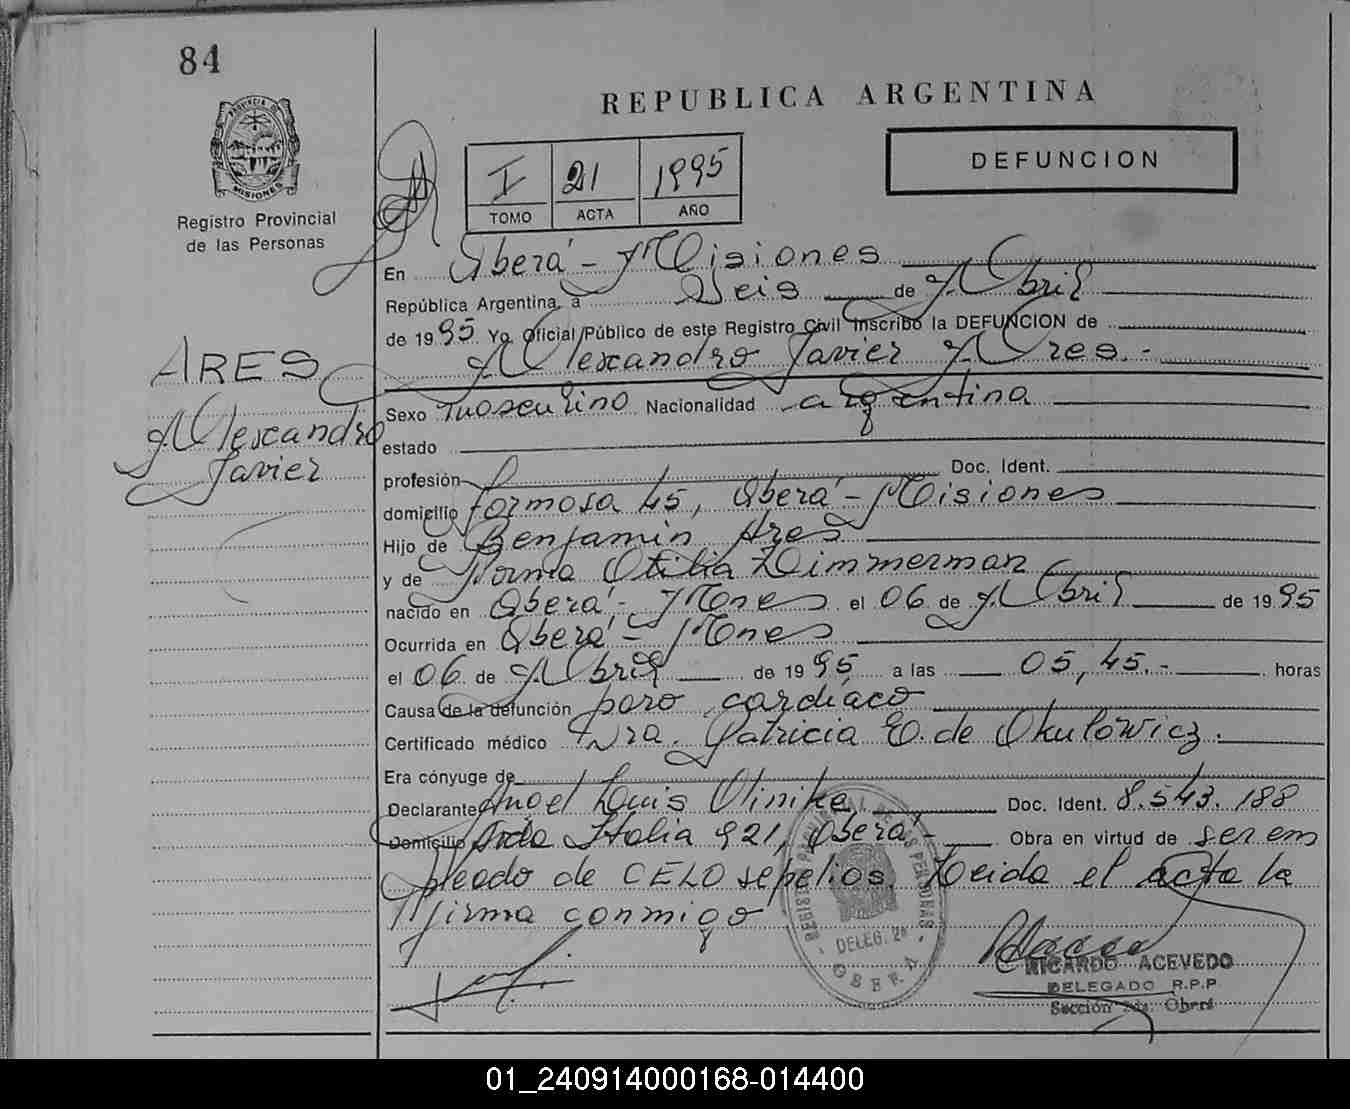 84
PROVINCIA DE
MISIONES
Registro Provincial
de las Personas
REPUBLICA ARGENTINA
DEFUNCION
I 21 1995
TOMO ACTA AÑO
En Oberá - Misiones
República Argentina, a Seis de Abril
de 1995 Yo, Oficial Público de este Registro Civil inscribo la DEFUNCION de
Alexandro Javier Ares.-
ARES
Alexandro
Javier
Sexo masculino Nacionalidad argentina
estado
profesión Doc. Ident.
domicilio formosa 45, Oberá - Misiones
Hijo de Benjamin Ares
y de Norma Otilia Zimmerman
nacido en Oberá - Mnes el 06 de Abril de 1995
Ocurrida en Oberá - Mnes
el 06 de Abril de 1995 a las 05,45.- horas
Causa de la defunción paro cardíaco
Certificado médico Dra. Patricia E. de Okulowicz.
Era cónyuge de
Declarante Angel Luis Olinike Doc. Ident. 8.543.188
Domicilio Avda Italia 921, Oberá - Obra en virtud de ser em
pleado de CELO sepelios. Leida el acta la
firma conmigo
REGISTRO PROVINCIAL DE LAS PERSONAS
DELEG. 2ª
OBERA
RICARDO ACEVEDO
DELEGADO R.P.P
Sección 2da. Oberá
01_240914000168-014400